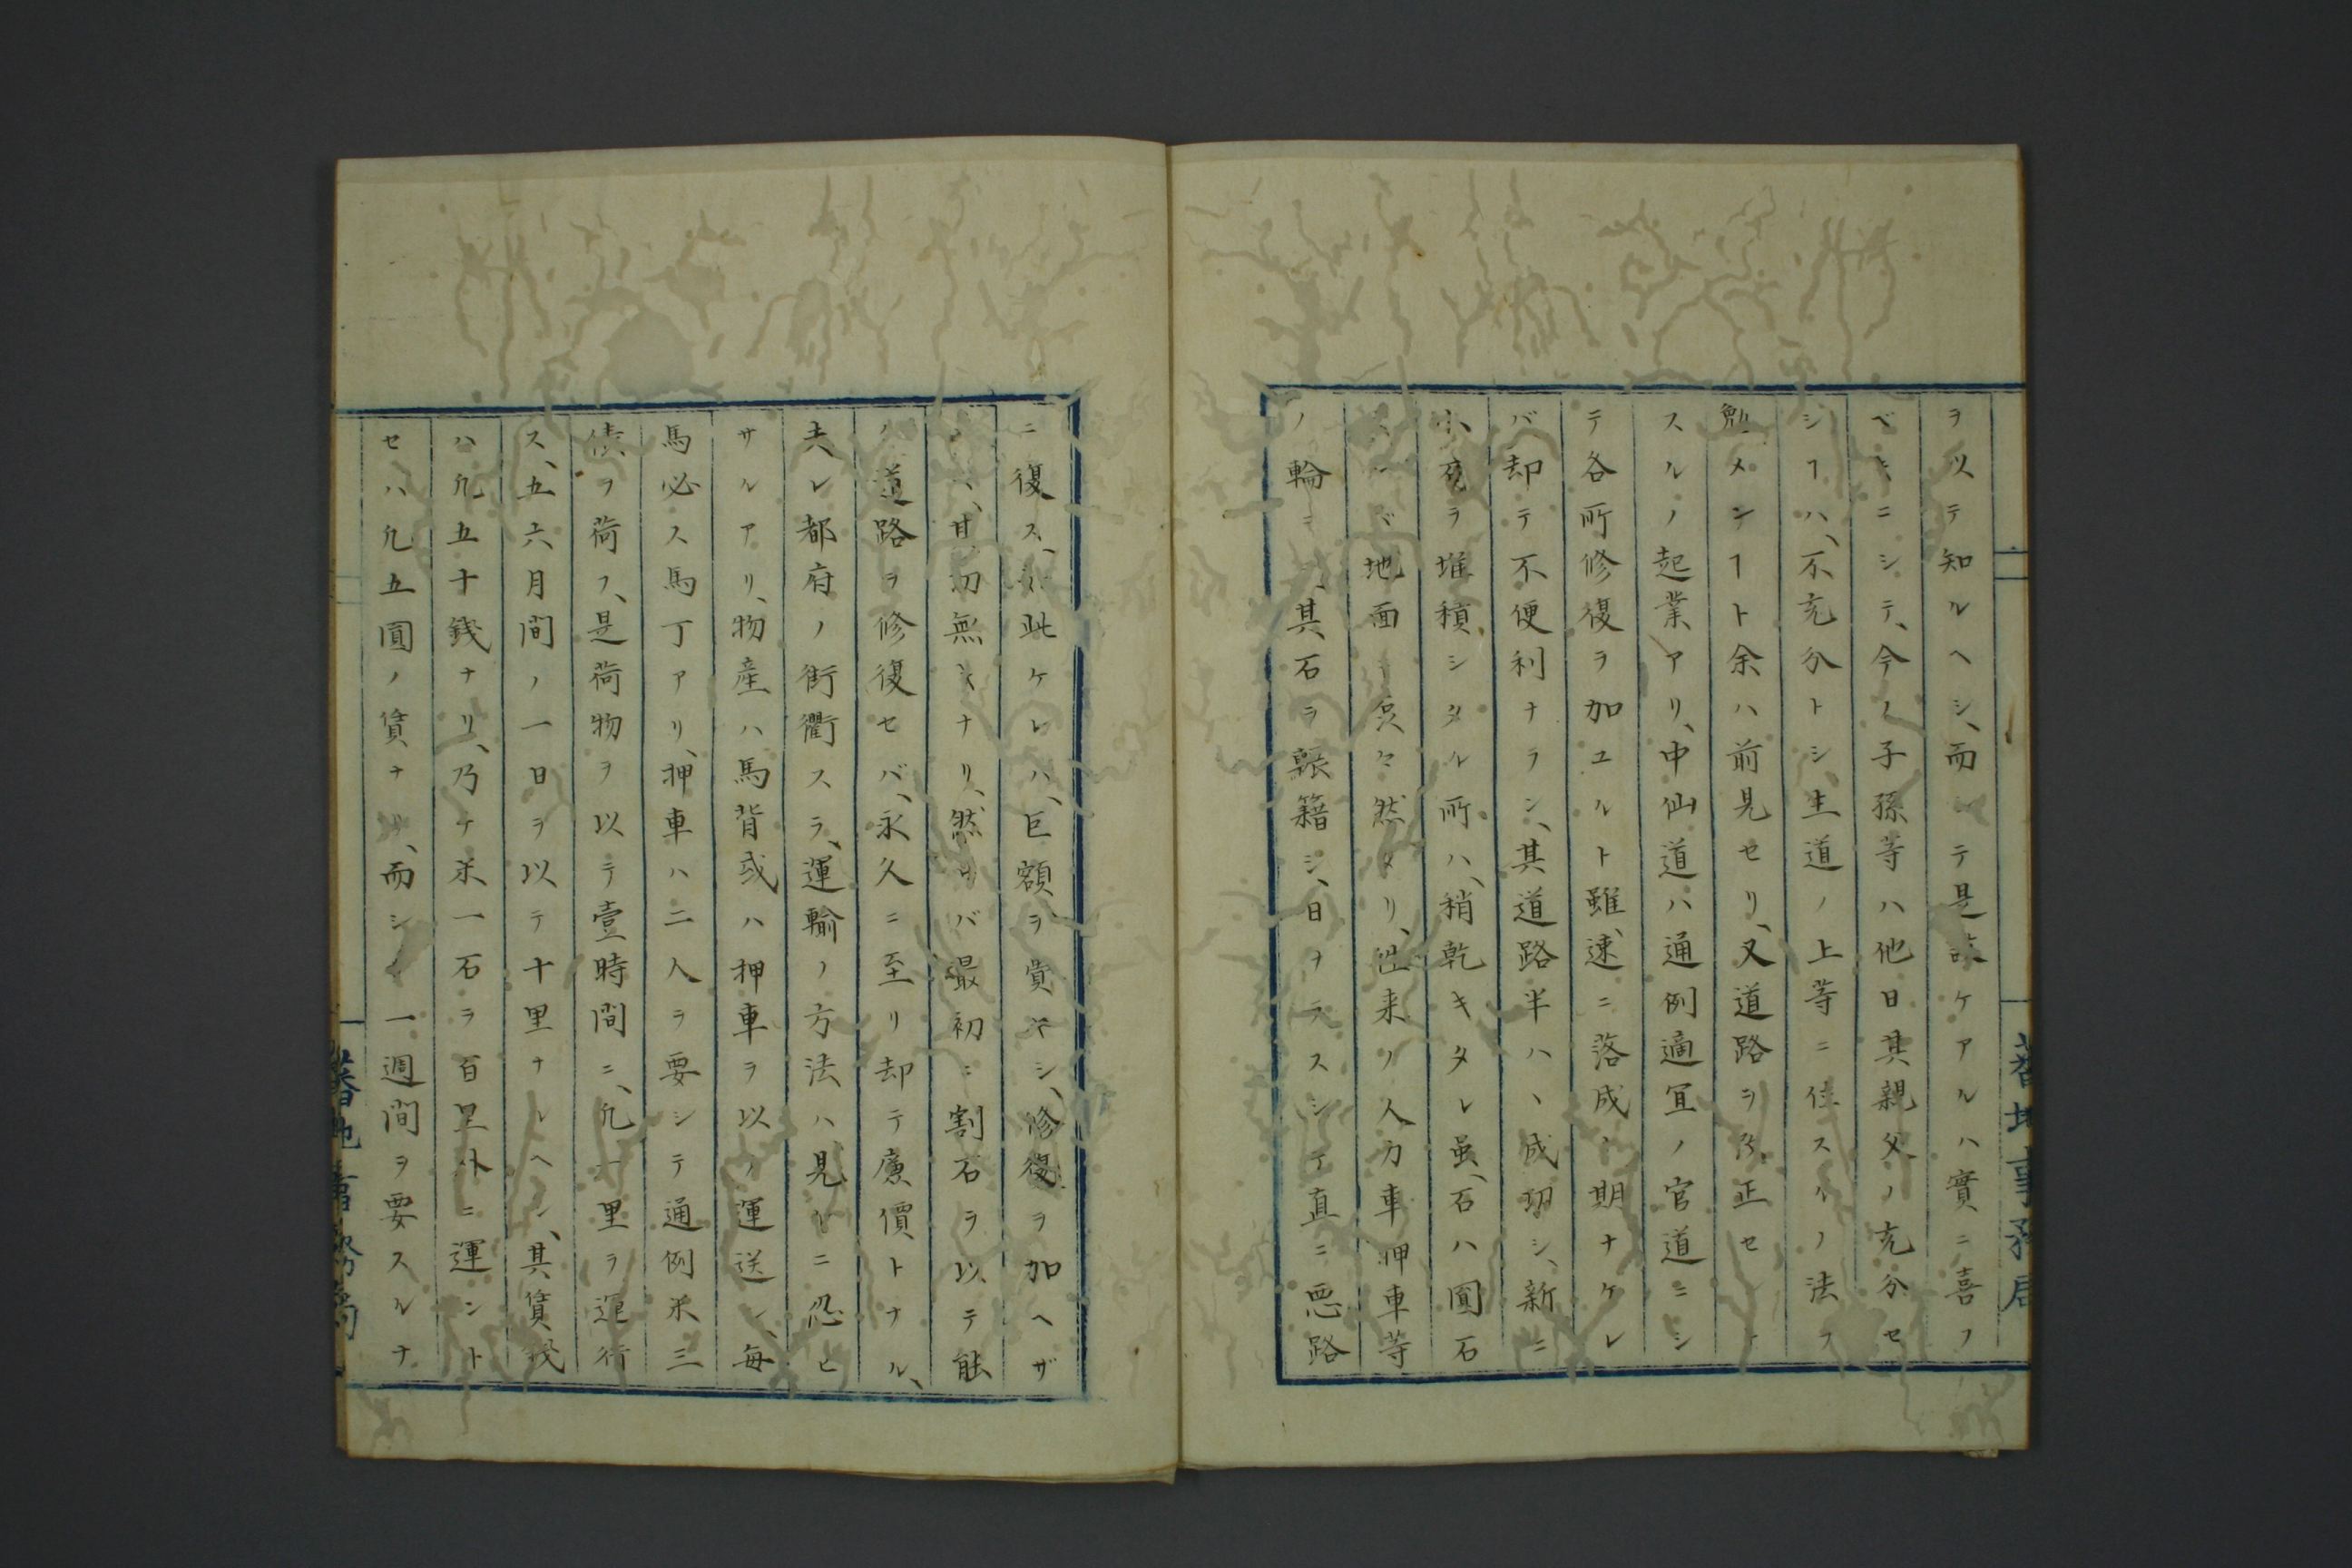 ヲ以テ知ルヘシ、而シテ是許ケアルハ實ニ喜フ
ベキニシテ、今ノ子孫等ハ他日其親父ノ充分セ
シヿハ、不充分トシ、生道ノ上等ニ位スルノ法ヲ
勉メンヿト余ハ前見セリ、又道路ヲ改正セント
スルノ起業アリ、中仙道ハ通例適冝ノ官道ニシ
テ各所修復ヲ加ユルト雖、速ニ落成ノ期ナケレ
バ却テ不便利ナラン、其道路半ハ、成功シ、新ニ
小砂ヲ堆積シタル所ハ、稍乾キタレ虽、石ハ圓石
バ地面 然タリ、徃来ノ人力車押車等
ノ輪ニ、其石ヲ輾籍シ、日ナラスシテ直ニ悪路
ニ復ス、如此ケレハ、巨額ヲ賞ヤシ、修復ヲ加ヘザ
ルハ、甘功無キナリ、然ラバ最初ニ割石ヲ以テ能
ク道路ヲ修復セバ、永久ニ至リ却テ廉價トナル、
夫レ都府ノ街衢スラ、運輸ノ方法ハ見ルニ忍ヒ
サルアリ、物産ハ馬背或ハ押車ヲ以テ運送シ、毎
馬必ス馬丁アリ、押車ハ二人ヲ要シテ通例米三
俵ヲ荷フ、是荷物ヲ以テ壹時間ニ、凢一里ヲ運行
ス、五六月間ノ一日ヲ以テ十里ナルヘシ、其賃銭
ハ凢五十錢ナリ、乃チ米一石ヲ百里外ニ運ント
セハ凢五圓ノ賃ナリ、而シテ一週間ヲ要スルナ
蕃地事務局